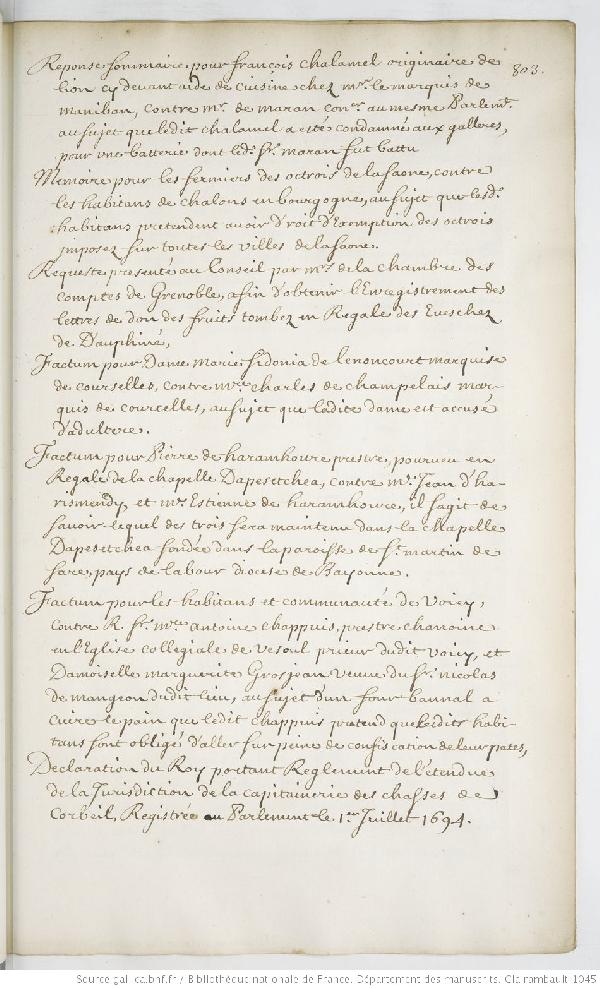 803.
Reponse sommaire pour françois chalamel originaire de
lion cy devant aide de cuisine chez mr. le marquis de
maniban, contre mr. de maran coner. au mesme Parlemt.
au sujet que ledit chalamel a esté condamné aux galleres,
pour une batterie dont led. sr. maran fut battu
Memoire pour les fermiers des octrois de la saone, contre
les habitans de chalons en bourgogne, au sujet que lesd.
habitans pretendent avoir droit d'Exemption des octrois
imposez sur toutes les villes de la saone.
Requeste presenté au Conseil par mrs. de la chambre des
comptes de Grenoble, afin d'obtenir l'Enregistrement des
lettres de don des fruits tombez en Regale des Eveschez
de Dauphiné,
Factum pour Dame marie sidonia de lenoncourt marquise
de courselles, contre mre. charles de champelais mar-
quis de courcelles, au sujet que ladite dame est accusé
d'adultere.
Factum pour Pierre de haramboure prestre, pourveu en
Regale de la chapelle Dapesetchea, contre mr. Jean d'ha-
rismendy, et mre. Estienne de haramboure, il sagit de
savoir lequel des trois sera maintenu dans la chapelle
Dapesetchea fondée dans la paroisse de St. martin de
sare, pays de labour diocese de Bayonne.
Factum pour les habitans et communauté de Voicy,
contre R. sr. mre. antoine chappuis, prestre chanoine
en l'Eglise collegiale de vesoul prieur dudit voicy, et
Damoiselle marguerite Grosjean veuve du sr. nicolas
de mangeon dudit lieu, au sujet d'un four bannal a
cuire le pain que ledit chappuis pretend que lesdits habi-
tans sont obligé d'aller sur peine de confiscation de leur pates,
Declaration du Roy portant Reglement de l'étendue
de la Jurisdiction de la capitainerie des chasses de
Corbeil, Registrée au Parlement le 1er Juillet 1694.
Source gallica.bnf.fr / Bibliothèque nationale de France. Département des manuscrits. Clairambault 1045